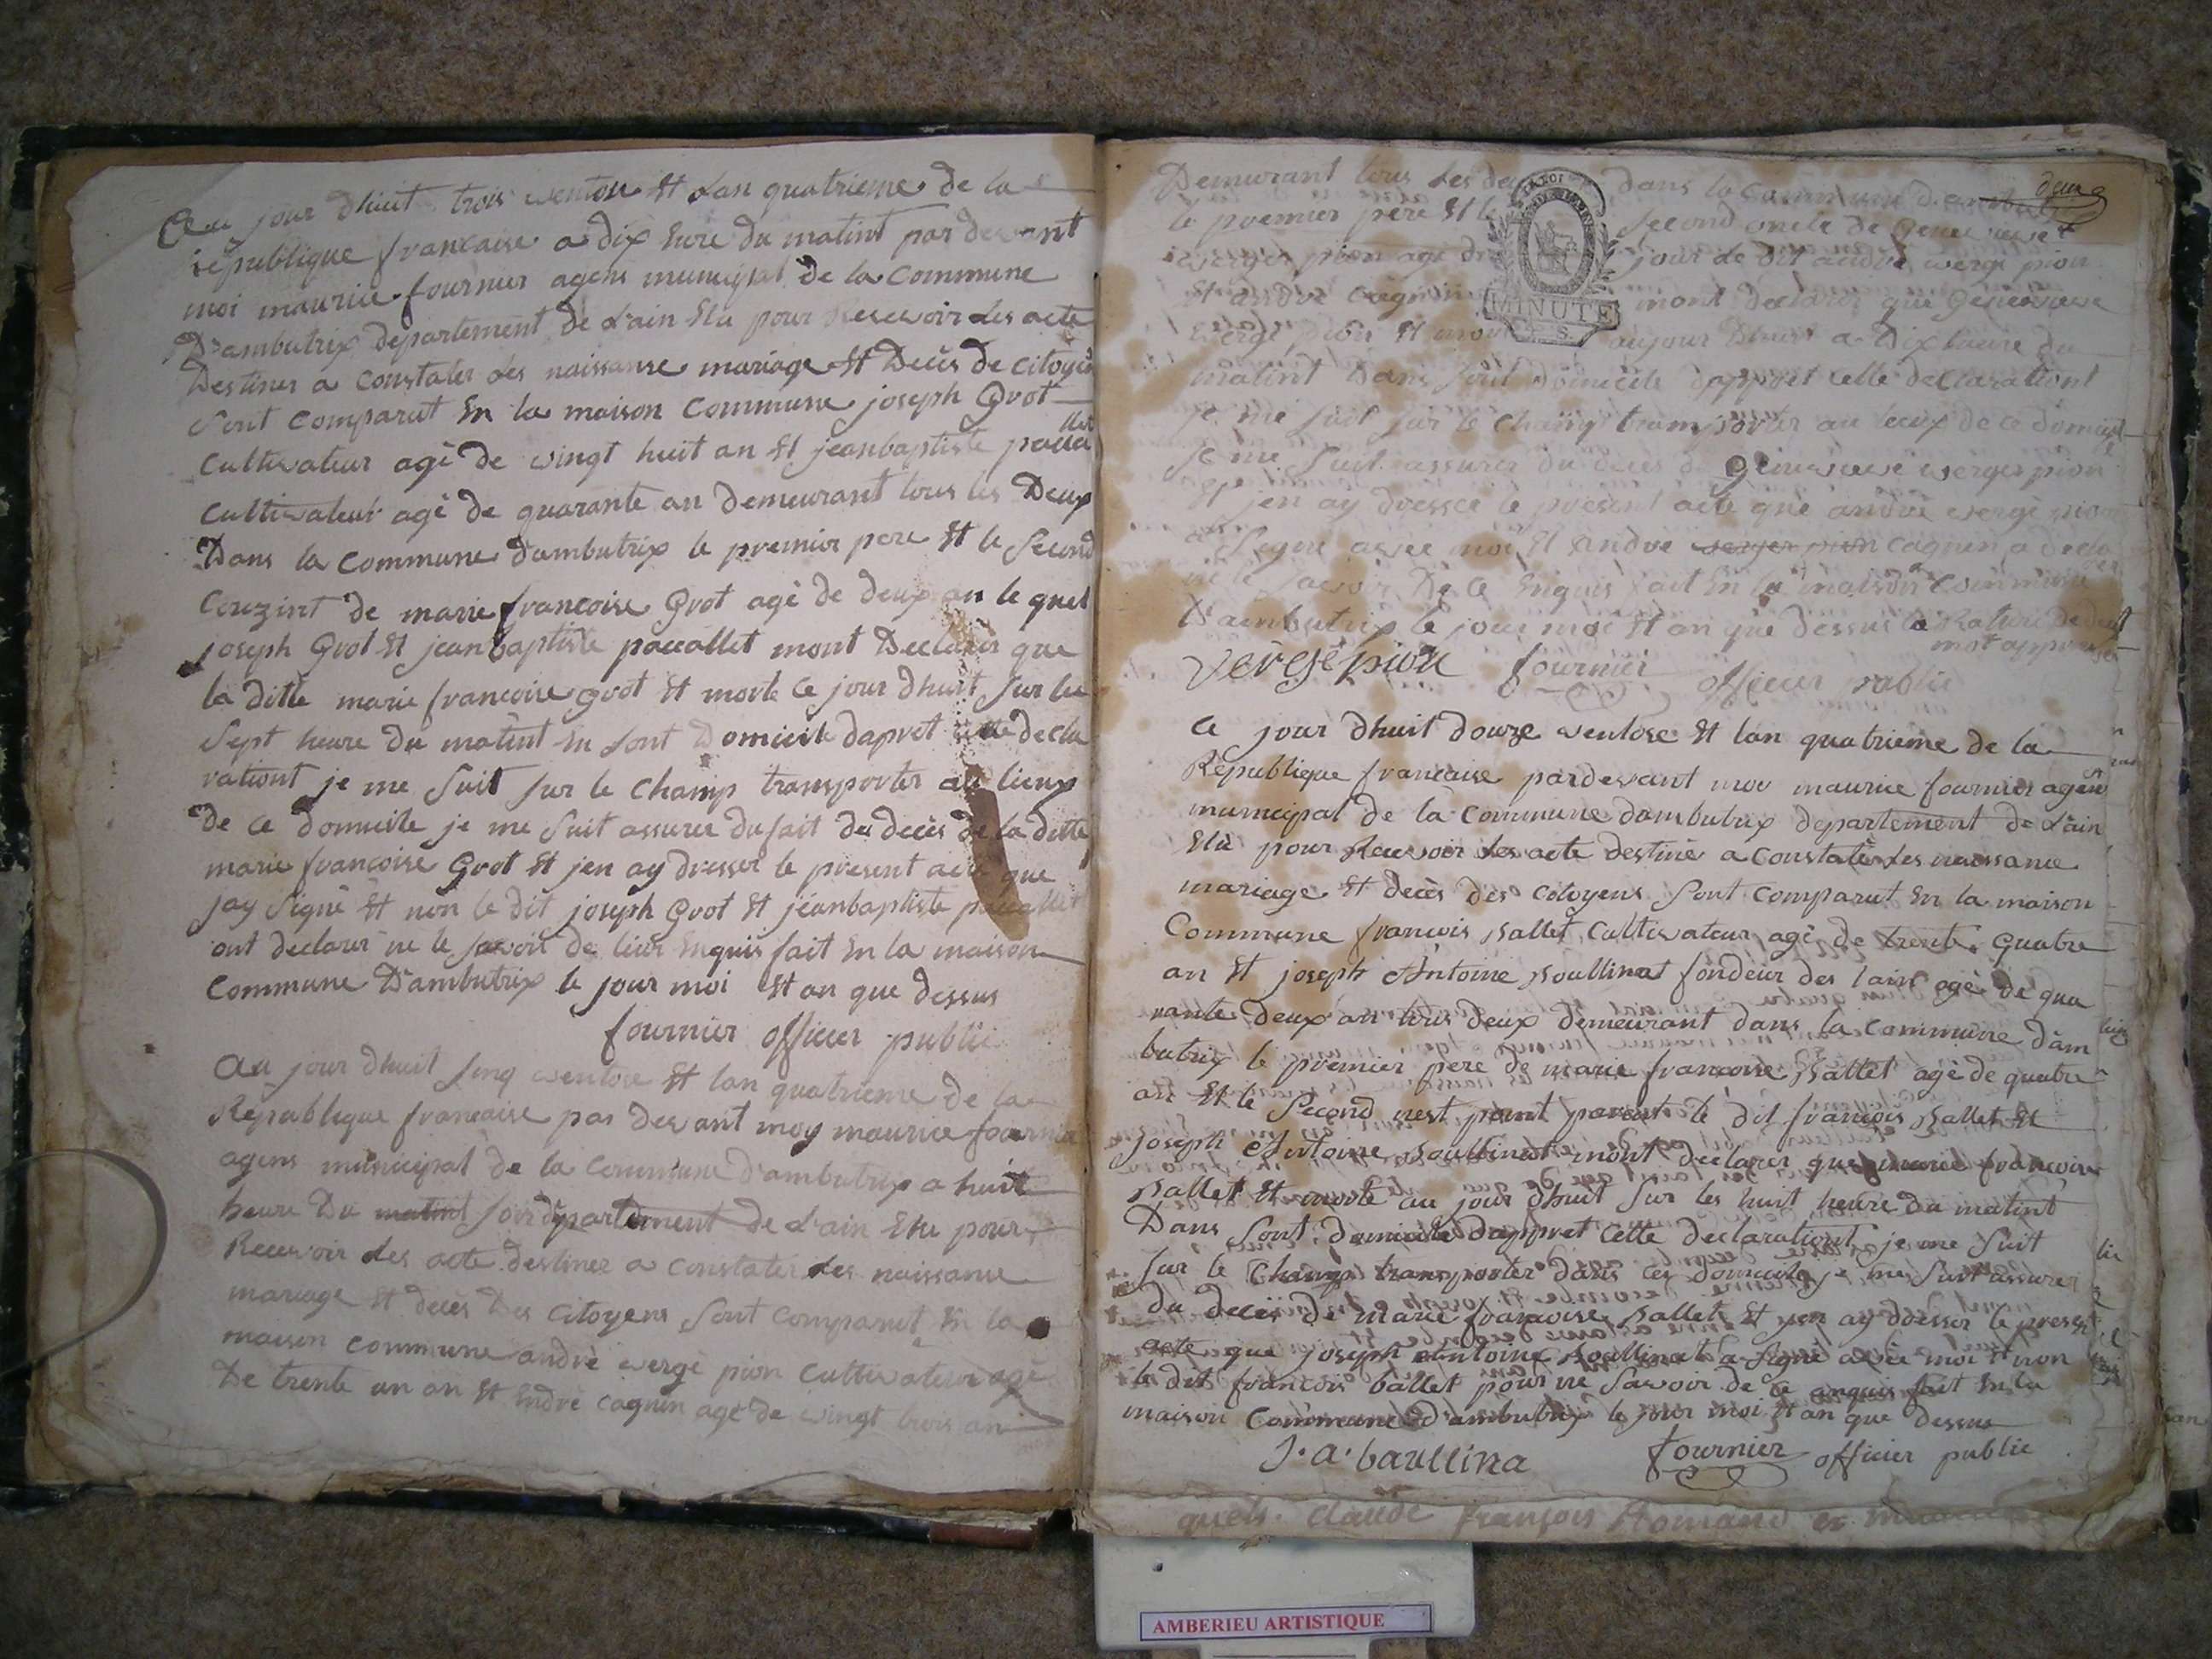 Au jour dhuit trois ventose Et Lan quatrieme de la
république francaise a dix hure du matint par devant
moi maurice fournier agens municipal de la Commune
D'ambutrix departement de L'ain Elu pour Recevoir Les acte
Destiner a Constater Les naissanse mariage Et Decès de citoyen
Sont Comparut En la maison Commune joseph Grot
Cultivateur agè de vingt huit an Et jeanbaptiste paccallet
Cultivateur agè de quarante an demeurant tous les Deux
Dans la Commune D'ambutrix le premier pere Et le Second
Couzint de marie francoise Grot agè de deux an le quel
joseph Grot Et jeanbaptiste paccallet mont Declarer que
la ditte marie francoise grot Et morte Ce jour dhuit Sur les
Sept heure du matint En Sont Domicile dapret cette decla
rationt je me Suit Sur le Champ transporter au lieux
de Ce domicile je me Suit assurer du fait du decès de la ditte
marie francoise Grot Et jen ay dresser le present acte que
jay Signè Et non le dit joseph Grot Et jeanbaptiste paccallet
ont declarer ne le Savoir de leur Enquis fait En la maison
Commune D'ambutrix le jour moi Et an que dessus
fournier officier public
Au jour dhuit Sinq ventose Et lan quatrieme de la
Republique francaise par devant moy maurice fournier
agens municipal de la Commune d'ambutrix a huit
heure Du matint Soir departement de L'ain Elu pour
Recevoir Les acte destinee a Constater Les naissanse
mariage Et decès Des Citoyens Sont Comparut En la
maison Commune andrè vergè pion Cultivateur agè
De trente un an Et Endrè cagnin agè de vingt trois an
deux
Demurant tous Les de dans la Commune d'ambut
le premier pere Et le Second oncle de Genevieve
verger pion agè de jour le dit andrè vergè pion
Et andrè Cagnin mont declarer que Genevieve
vergè pion Et mor aujour dhuit a Dix heure du
matint Dans Sont Domicile dappret Cette declarationt
je me Suit Sur le Champ transporter au lieux de Ce domicile
je me Suit assurer du decès de genevieve verger pion
Et jen ay dresser le present acte que andrè vergè pion
a Signè avec moi Et Andrè verger pion Cagnin a declarer
ne le Savoir De Ce Enquis fait En la maison Commune
D'ambutrix le jour moi Et an que dessus la Rature de deux
mot approuver
vergè pion fournier officier public
Ce jour dhuit douze ventose Et lan quatrieme de la
Republique francaise pardevant moi maurice fournier agens
municipal de la Commune dambutrix departement de L'ain
Elu pour Recevoir Les acte destinè a Constater Les naissance
mariage Et decès des Citoyens Sont Comparut En la maison
Commune francois Ballet Cultivateur agè de trente quatre
an Et joseph Antoine Boullinat fondeur des lain agè de qua
rante deux an tous deux demeurant dans la Commune d'am
butrix le premier pere de marie francoise Ballet agè de quatre
an Et le Second nest point parent le dit francois Ballet Et
joseph Antoine Boullinat mont declarer que marie francoise
Ballet Et morte au jour dhuit Sur les huit heure du matint
Dans Sont domicile dappret Cette declarationt je me Suit
Sur le Champ transporter dans ces domicile je me Suit assurer
du decès de marie francoise Ballet Et jen ay dresser le present
acte que joseph Antoine Boullinat a Signè avec moi Et non
le dit francois ballet pour ne Savoir de Ce anquis fait En la
maison Commune d'ambutrix le jour moi Et an que dessus
J. a. baullina fournier officier public
quels. claude françois Romand et
LA LOI
MINUTE
AMBERIEU ARTISTIQUE